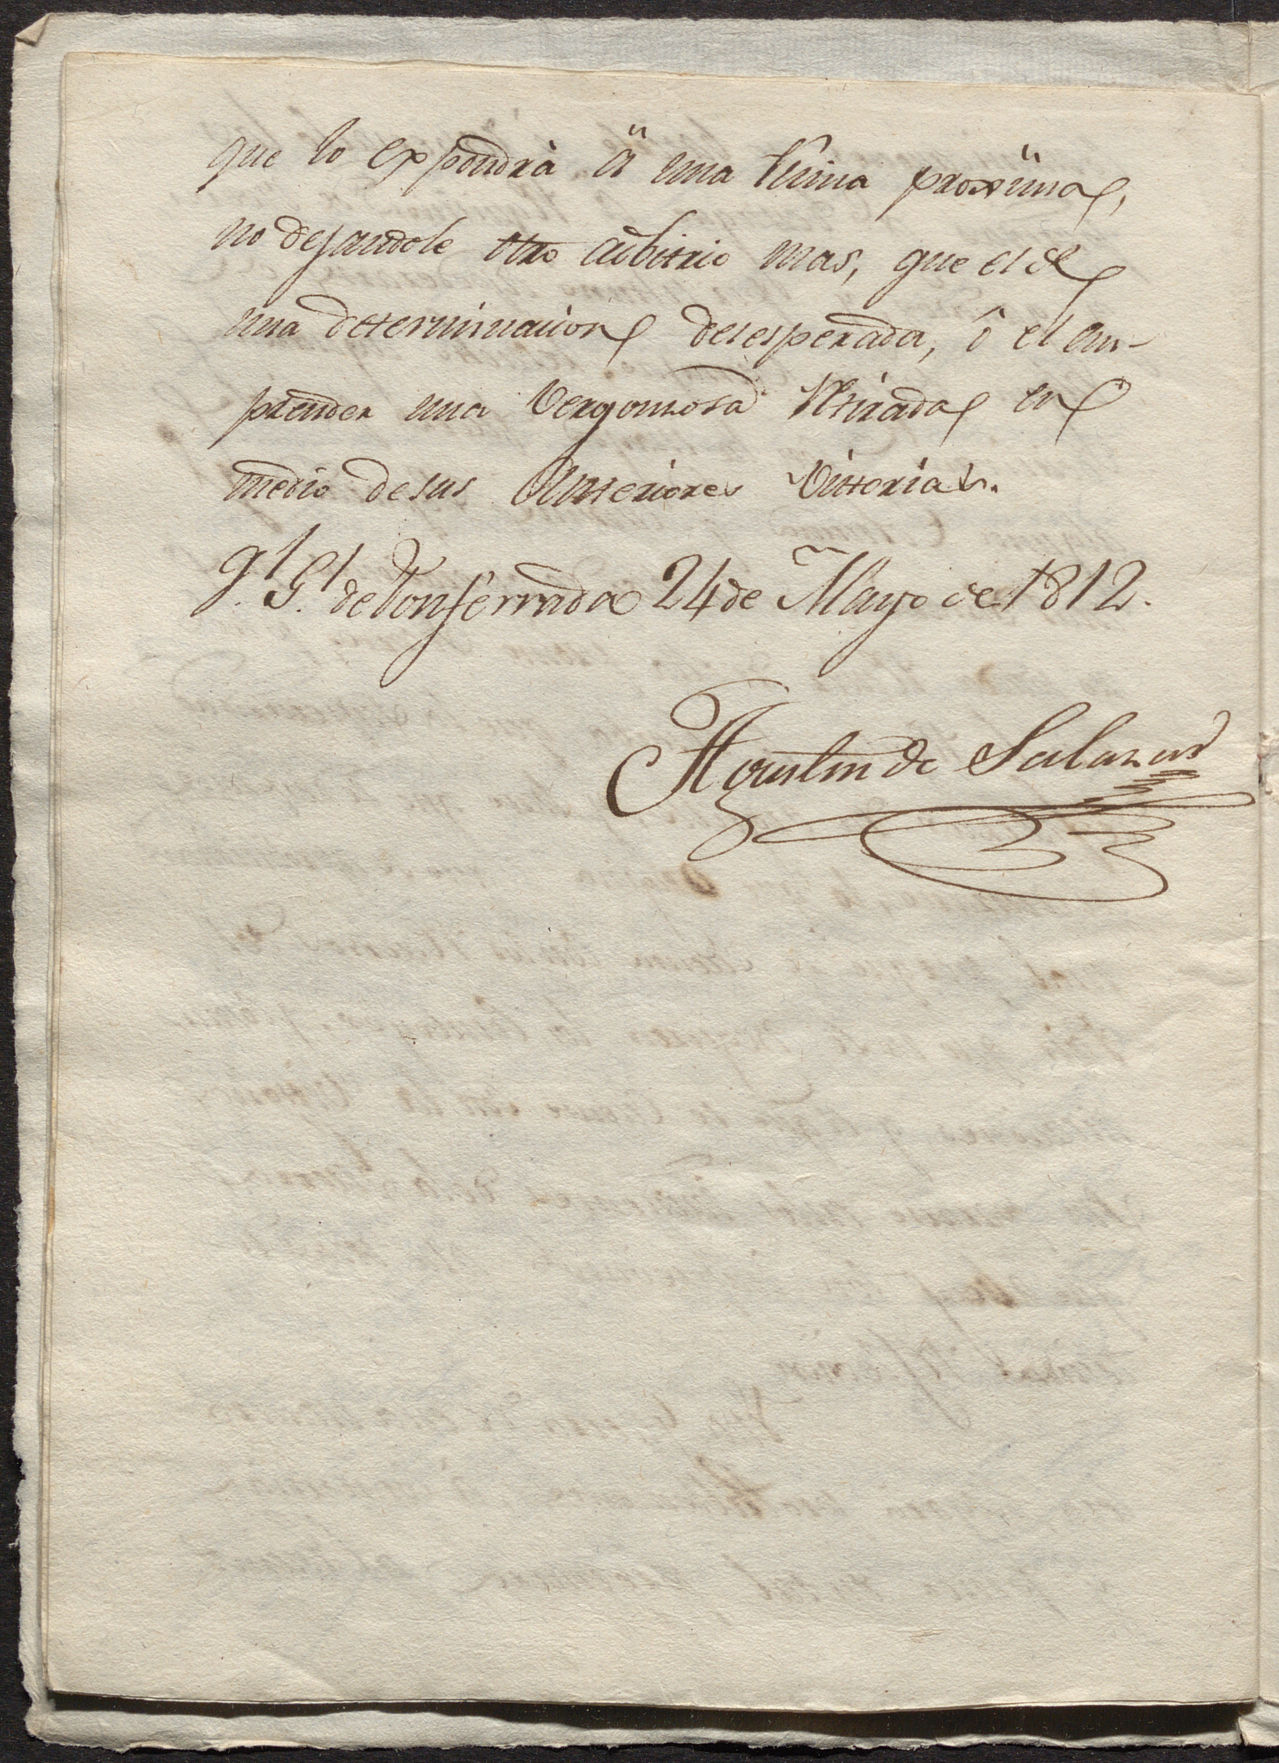 que lo expondrà ä una Ruina proxîma,
no dejandole otro adbitrio mas, que el de
una determinacion desesperada, ô el em-
prender una Vergonzosa Retirada en
medio de sus Anteriores Victorias.
Ql. Gl. de Ponferrada 24 de Mayo de 1812.
Agustin de Salazar